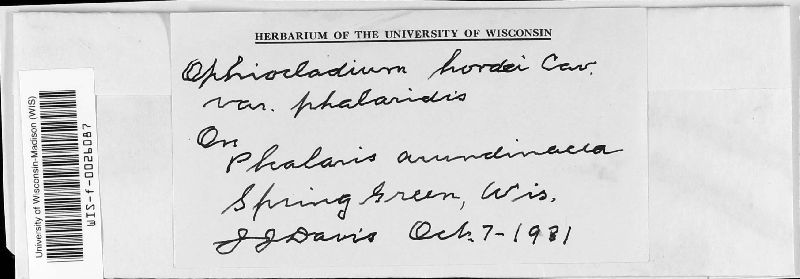 HERBARIUM OF THE UNIVERSITY OF WISCONSIN
Ophiocladium hordei Cav.
var. phalaridis
On
Phalaris arundinacea
Spring Green, Wis.
J J Davis Oct. 7-1931
University of Wisconsin-Madison (WIS)
WIS-f-0026087